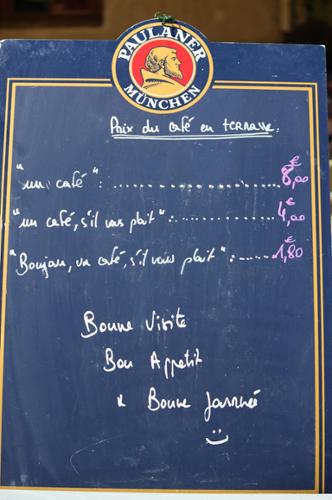 PAULANER
MÜNCHEN
Prix du café en terrasse.
"un café" : .......................... 8,00 €
"un café, s'il vous plait" : .............. 4,00 €
"Bonjour, un café, s'il vous plait" : ...... 1,80 €
Bonne Visite
Bon Appetit
& Bonne Journée